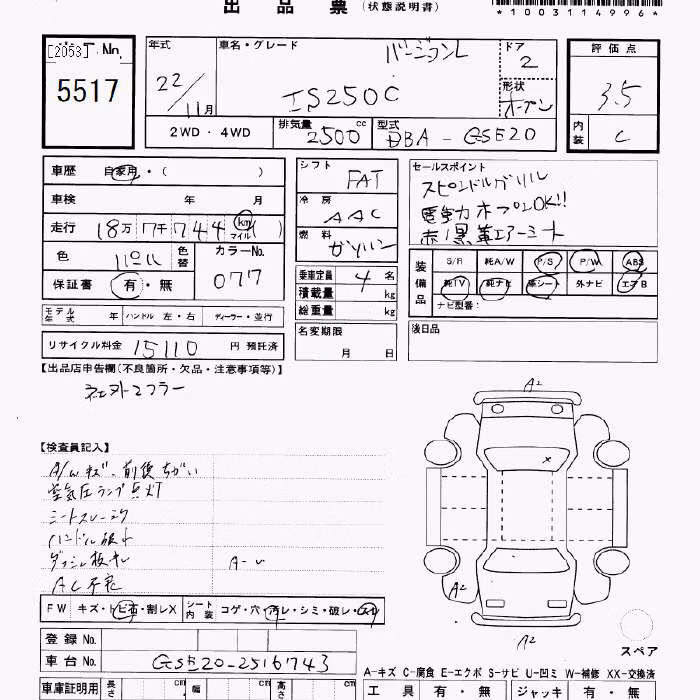 出品票（状態説明書）
*1003114996*
[2053] No.
5517
年式 22/11月
車名・グレード バージョンL
IS250C
ドア 2
形状 オープン
2WD・4WD
排気量 2500 cc
型式 DBA-GSE20
評価点 3.5
内装 C
車歴 自家用・（ ）
車検 年 月
走行 18万7千744 (km マイル)
色 パール 色替
カラーNo. 077
保証書 有・無
モデル年式 年 ハンドル 左・右 ディーラー・並行
リサイクル料金 15110 円 預託済
シフト FAT
冷房 AAC
燃料 ガソリン
乗車定員 4 名
積載量 kg
総重量 kg
名変期限 月 日
セールスポイント
スピンドルグリル
電動オープンOK!!
赤/黒革エアーシート
装備品
S/R 純A/W P/S P/W ABS
純TV 純ナビ 革シート 外ナビ エアB
ナビ型番：
後日品
【出品店申告欄(不良箇所・欠品・注意事項等)】
社外マフラー
【検査員記入】
A/Wキズ、前後ちがい
空気圧ランプ点灯
シートスレ
ハンドル
ダッシュ板キレ
AC不良
A-U
A2
X
A2
A2
A2
FW キズ・トビ石・割レX
シート内装 コゲ・穴・汚レ・シミ・破レ・スレ
登録No.
車台No. GSE20-2516743
スペア
A-キズ C-腐食 E-エクボ S-サビ U-凹ミ W-補修 XX-交換済
車庫証明用 長さ cm 幅 cm 高さ cm
工具 有・無 ジャッキ 有・無